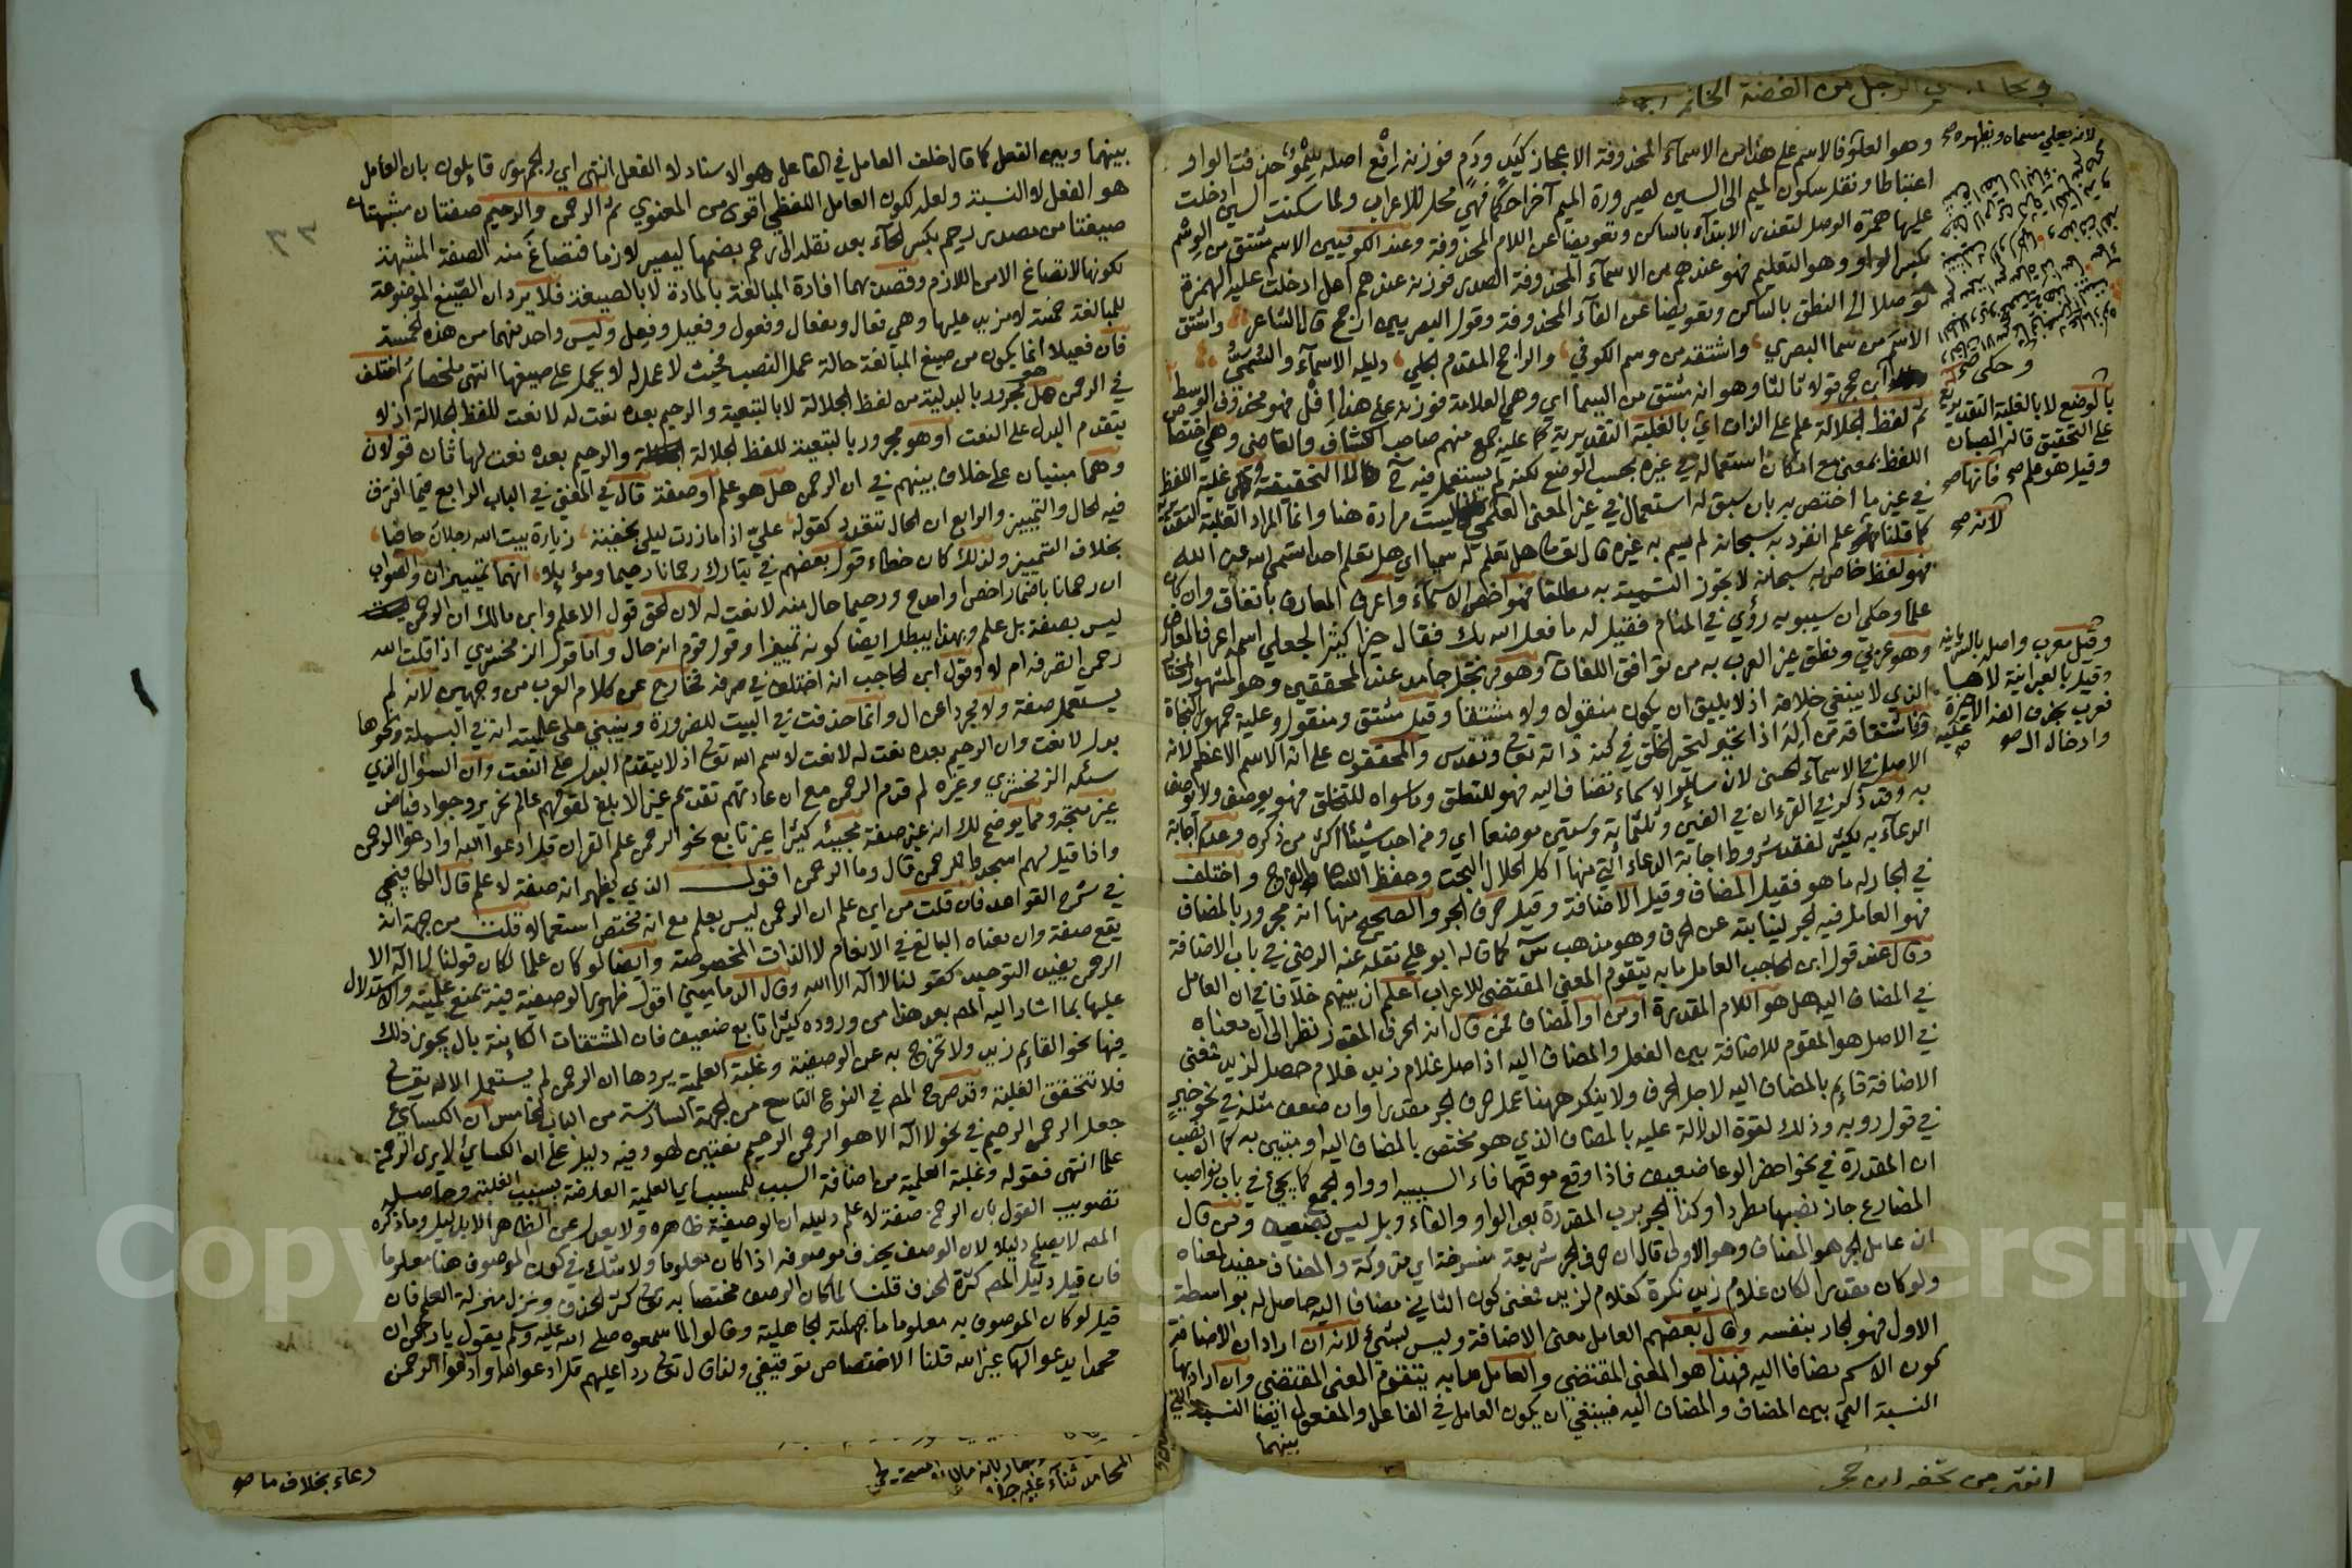 وهو العلو فالاسم على هذا من الاسماء المحذوفة الاعجاز كيد ودم فوزنه افع اصله سمو حذفت الواو
اعتباطا ونقل سكون الميم الى السين لصيرورة الميم آخرا حكما فهي محل للاعراب ولما سكنت السين ادخلت
عليها همزة الوصل لتعذر الابتداء بالساكن وتعويضا عن اللام المحذوفة وعند الكوفيين الاسم مشتق من الوسم
بكسر الواو وهو التعليم فهو عندهم من الاسماء المحذوفة الصدر فوزنه عندهم اعل ادخلت عليه الهمزة
توصلا الى النطق بالساكن وتعويضا عن الفاء المحذوفة وقول البصريين ارجح قال الشاعر واشتق
الاسم من سما البصري واشتقه من وسم الكوفي والراجح المقدم الجلي دليله الاسماء والسمي
ابن حجر قولا ثالثا وهو انه مشتق من السيما اي وهي العلامة فوزنه على هذا افل فهو محذوف الوسط
ثم لفظ الجلالة علم على الذات اي بالغلبة التقديرية كما عليه جمع منهم صاحب الكشاف والقاضي وهي اختصاص
اللفظ بمعنى مع امكان استعماله في غيره بحسب الوضع لكنه لم يستعمل فيه التحقيقية وهي غلبة اللفظ
في غير ما اختص به بان سبق له استعمال في غير المعنى العلمي فليست مرادة هنا وانما المراد الغلبة التقديرية
كما قلنا علم انفرد به سبحانه لم يسم به غيره قال تعالى هل تعلم له سميا اي هل تعلم احدا تسمى الله غير الله
فهو لفظ خاص به سبحانه لا يجوز التسمية به مطلقا فهو اخص الاسماء واعرف المعارف باتفاق وان كان
علما وحكي ان سيبويه رؤي في المنام فقيل له ما فعل الله بك فقال خيرا كثيرا لجعلي اسمه اعرف المعارف
وهو عربي ونطق غير العرب به من توافق اللغات وهو مرتجل جامد عند المحققين وهو المشهور المختار
الذي لا ينبغي خلافه اذ لا يليق ان يكون منقولا ولا مشتقا وقيل مشتق ومنقول وعليه جمهور النحاة
فاشتقاقه من اله اذا تحير لتحير الخلق في كنه ذاته تعالى وتقدس والمحققون على انه الاسم الاعظم لانه
الاصل في الاسماء الحسنى لان سائر الاسماء تضاف اليه فهو للتعلق وما سواه للتخلق فهو يوصف ولا يوصف
به وقد ذكر في القرءان في الفين وثلثماية وستين موضعا اي ومن احد شيئا اكثر من ذكره وعدم اجابة
الدعاء به لكثير لفقد شروط اجابة الدعاء التي منها اكل الحلال البحت وحفظ اللسان والفرج واختلف
في الجار له ما هو فقيل المضاف وقيل الاضافة وقيل حرف الجر والصحيح منها انه مجرور بالمضاف
فهو العامل فيه الجر لنيابته عن الحرف وهو مذهب س كما قاله ابو علي نقله عنه الرضي في باب الاضافة
وقال عند قول ابن الحاجب العامل ما به يتقوم المعنى المقتضي للاعراب اعلم ان بينهم خلافا في ان العامل
في المضاف اليه هل هو اللام المقدرة او من او المضاف فمن قال انه الحرف المقدر نظر الى ان معناه
في الاصل هو المقوم للاضافة بين الفعل والمضاف اليه اذ اصل غلام زيد غلام حصل لزيد فمعنى
الاضافة قايم بالمضاف اليه لاجل الحرف ولا ينكر ههنا عمل حرف الجر مقدرا وان ضعف مثله في نحو خير
في قول روبه وذلك لقوة الدلالة عليه بالمضاف الذي هو مختص بالمضاف اليه او مبين به كما ان نصب
ان المقدرة في نحو احضر الوغا ضعيف فاذا وقع موقعها فاء السببية او واو الجمع كما يجئ في باب نواصب
المضارع جاز نصبها مطردا وكذا الجر برب المقدرة بعد الواو والفاء وبل ليس بضعيف ومن قال
ان عامل الجر هو المضاف وهو الاولى قال ان حرف الجر شريعة منسوخة اي متروكة والمضاف مفيد لمعناه
ولو كان مقدرا لكان غلام زيد نكرة كغلام لزيد فمعنى كون الثاني مضافا اليه حاصل له بواسطة
الاول فهو الجار بنفسه وقال بعضهم العامل معنى الاضافة وليس بشئ لانه ان اراد ان الاضافة
كون الاسم مضافا اليه فهذا هو المعنى المقتضي والعامل ما به يتقوم المعنى المقتضي وان اراد بها
النسبة التي بين المضاف والمضاف اليه فينبغي ان يكون العامل في الفاعل والمفعول ايضا النسبة التي
بينهما
لانه يعلي مسماه ويظهره صح
وحكى صح
بالوضع لا بالغلبة التقديرية
على التحقيق قاله الصبان
وقيل هو علم صح فانها صح
لانه صح
وقيل معرب واصله بالسريانية
وقيل بالعبرانية لاها
فعرب بحذف الفه الاخيرة
وادخال ال صح
عليه صح
انتهى من تحفة ابن حجر
بينهما وبين الفعل كما قال خلف العامل في الفاعل هو الاسناد لا الفعل انتهى اي والجمهور قايلون بان العامل
هو الفعل لا النسبة ولعله لكون العامل اللفظي اقوى من المعنوي ثم الرحمن والرحيم صفتان مشبهتان
صيغتا من مصدر رحم بكسر الحاء بعد نقله الى رحم بضمها ليصير لازما فتصاغ منه الصفة المشبهة
لكونها لا تصاغ الا من اللازم وقصد بهما افادة المبالغة بالمادة لا بالصيغة فلا يرد ان الصيغ الموضوعة
للمبالغة خمسة لا مزيد عليها وهي فعال ومفعال وفعول وفعيل وفعل وليس واحد منهما من هذه الخمسة
فان فعيلا انما يكون من صيغ المبالغة حالة عمل النصب فحيث لا عمل له لا يحمل على صيغها انتهى ملخصا ثم اختلف
في الرحمن هل هو مجرور بالبدلية من لفظ الجلالة لا بالتبعية والرحيم بعده نعت له لا نعت للفظ الجلالة اذ لا
يتقدم البدل على النعت او هو مجرور بالتبعية للفظ الجلالة والرحيم بعده نعت لها ثان قولان
وهما مبنيان على خلاف بينهم في ان الرحمن هل هو علم او صفة قال في المغني في الباب الرابع فيما افترق
فيه الحال والتمييز والرابع ان الحال تتعدد كقوله علي اذا ما زرت ليلى بخفية زيارة بيت الله رجلان حافيا
بخلاف التمييز ولذلك كان خطاء قول بعضهم في تبارك رحمانا رحيما وموئلا انهما تمييزان والصواب
ان رحمانا باضمار اخص او امدح ورحيما حال منه لا نعت له لان الحق قول الاعلم وابن مالك ان الرحمن
ليس بصفة بل علم وبهذا يبطل ايضا كونه تمييزا وقول قوم انه حال واما قول الزمخشري اذا قلت الله
رحمن اتصرفه ام لا وقول ابن الحاجب انه اختلف في صرفه فخارج عن كلام العرب من وجهين لانه لم
يستعمل صفة ولا مجردا عن ال وانما حذفت في البيت للضرورة وينبني على علميته انه في البسملة ونحوها
بدل لا نعت وان الرحيم بعده نعت له لا نعت لاسم الله تعالى اذ لا يتقدم البدل على النعت وان السؤال الذي
سئله الزمخشري وغيره لم قدم الرحمن مع ان عادتهم تقديم غير الابلغ لقولهم عالم نحرير وجواد فياض
غير متجه ومما يوضح لك انه غير صفة مجيئه كثيرا غير تابع نحو الرحمن علم القران قل ادعوا الله او ادعوا الرحمن
واذا قيل لهم اسجدوا للرحمن قالوا وما الرحمن اقول الذي يظهر انه صفة لا علم قال الكافيجي
في شرح القواعد فان قلت من اين علم ان الرحمن ليس بعلم مع انه مختص استعمالا قلت من جهة انه
يقع صفة وان معناه البالغ في الانعام لا الذات المخصوصة وايضا لو كان علما لكان قولنا لا اله الا
الرحمن يفيد التوحيد كقولنا لا اله الا الله وقال الدماميني اقول ظهور الوصفية فيه تمنع علميته والاستدلال
عليها بما اشار اليه المص بعد هذا من وروده كثيرا تابع ضعيف فان المشتقات الكاينة بال يجوز ذلك
فيها نحو القايم زيد ولا تخرج به عن الوصفية وغلبة العلمية يردها ان الرحمن لم يستعمل الا له تعالى
فلا تتحقق الغلبة وقد صرح المص في النوع التاسع من الجهة السادسة من الباب الخامس ان الكسائي
جعل الرحمن الرحيم في نحو لا اله الا هو الرحمن الرحيم نعتين لهو وفيه دليل على ان الكسائي لا يرى الرحمن
علما انتهى فقوله وغلبة العلمية من اضافة السبب للمسبب اي العلمية العارضة بسبب الغلبة وحاصله
تصويب القول بان الرحمن صفة لا علم دليله ان الوصفية ظاهره ولا يعدل عن الظاهر الا بدليل وما ذكره
المص لا يصلح دليلا لان الوصف يحذف موصوفه اذا كان معلوما ولا شك في كون الموصوف هنا معلوما
فان قيل دليل المص كثرة الحذف قلنا لما كان الوصف مختصا به تعالى كثر الحذف ونزل منزلة العلم فان
قيل لو كان الموصوف به معلوما ما جهلته الجاهلية وقالوا لما سمعوه صلى الله عليه وسلم يقول يا رحمن ان
محمدا يدعوا الها غير الله قلنا الاختصاص توقيفي ولذا قال تعالى ردا عليهم قل ادعوا الله او ادعوا الرحمن
دعاء بخلاف ما صح